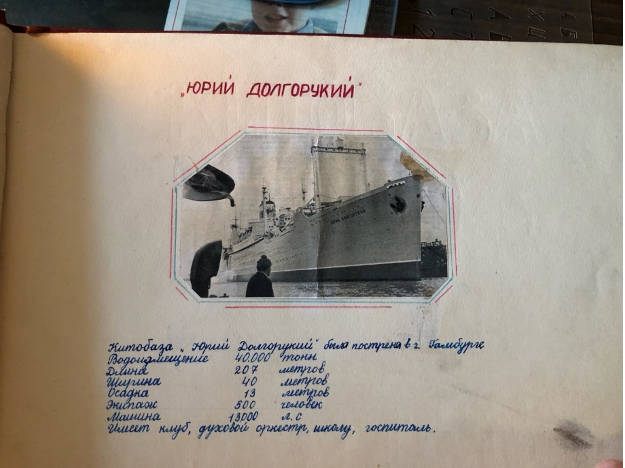 „ЮРИЙ ДОЛГОРУКИЙ"
Китобаза „Юрий Долгорукий" была построена в г. Гамбурге
Водоизмещение 40.000 тонн
Длина 207 метров
Ширина 40 метров
Осадка 13 метров
Экипаж 500 человек
Машина 13000 л.с
Имеет клуб, духовой оркестр, школу, госпиталь.